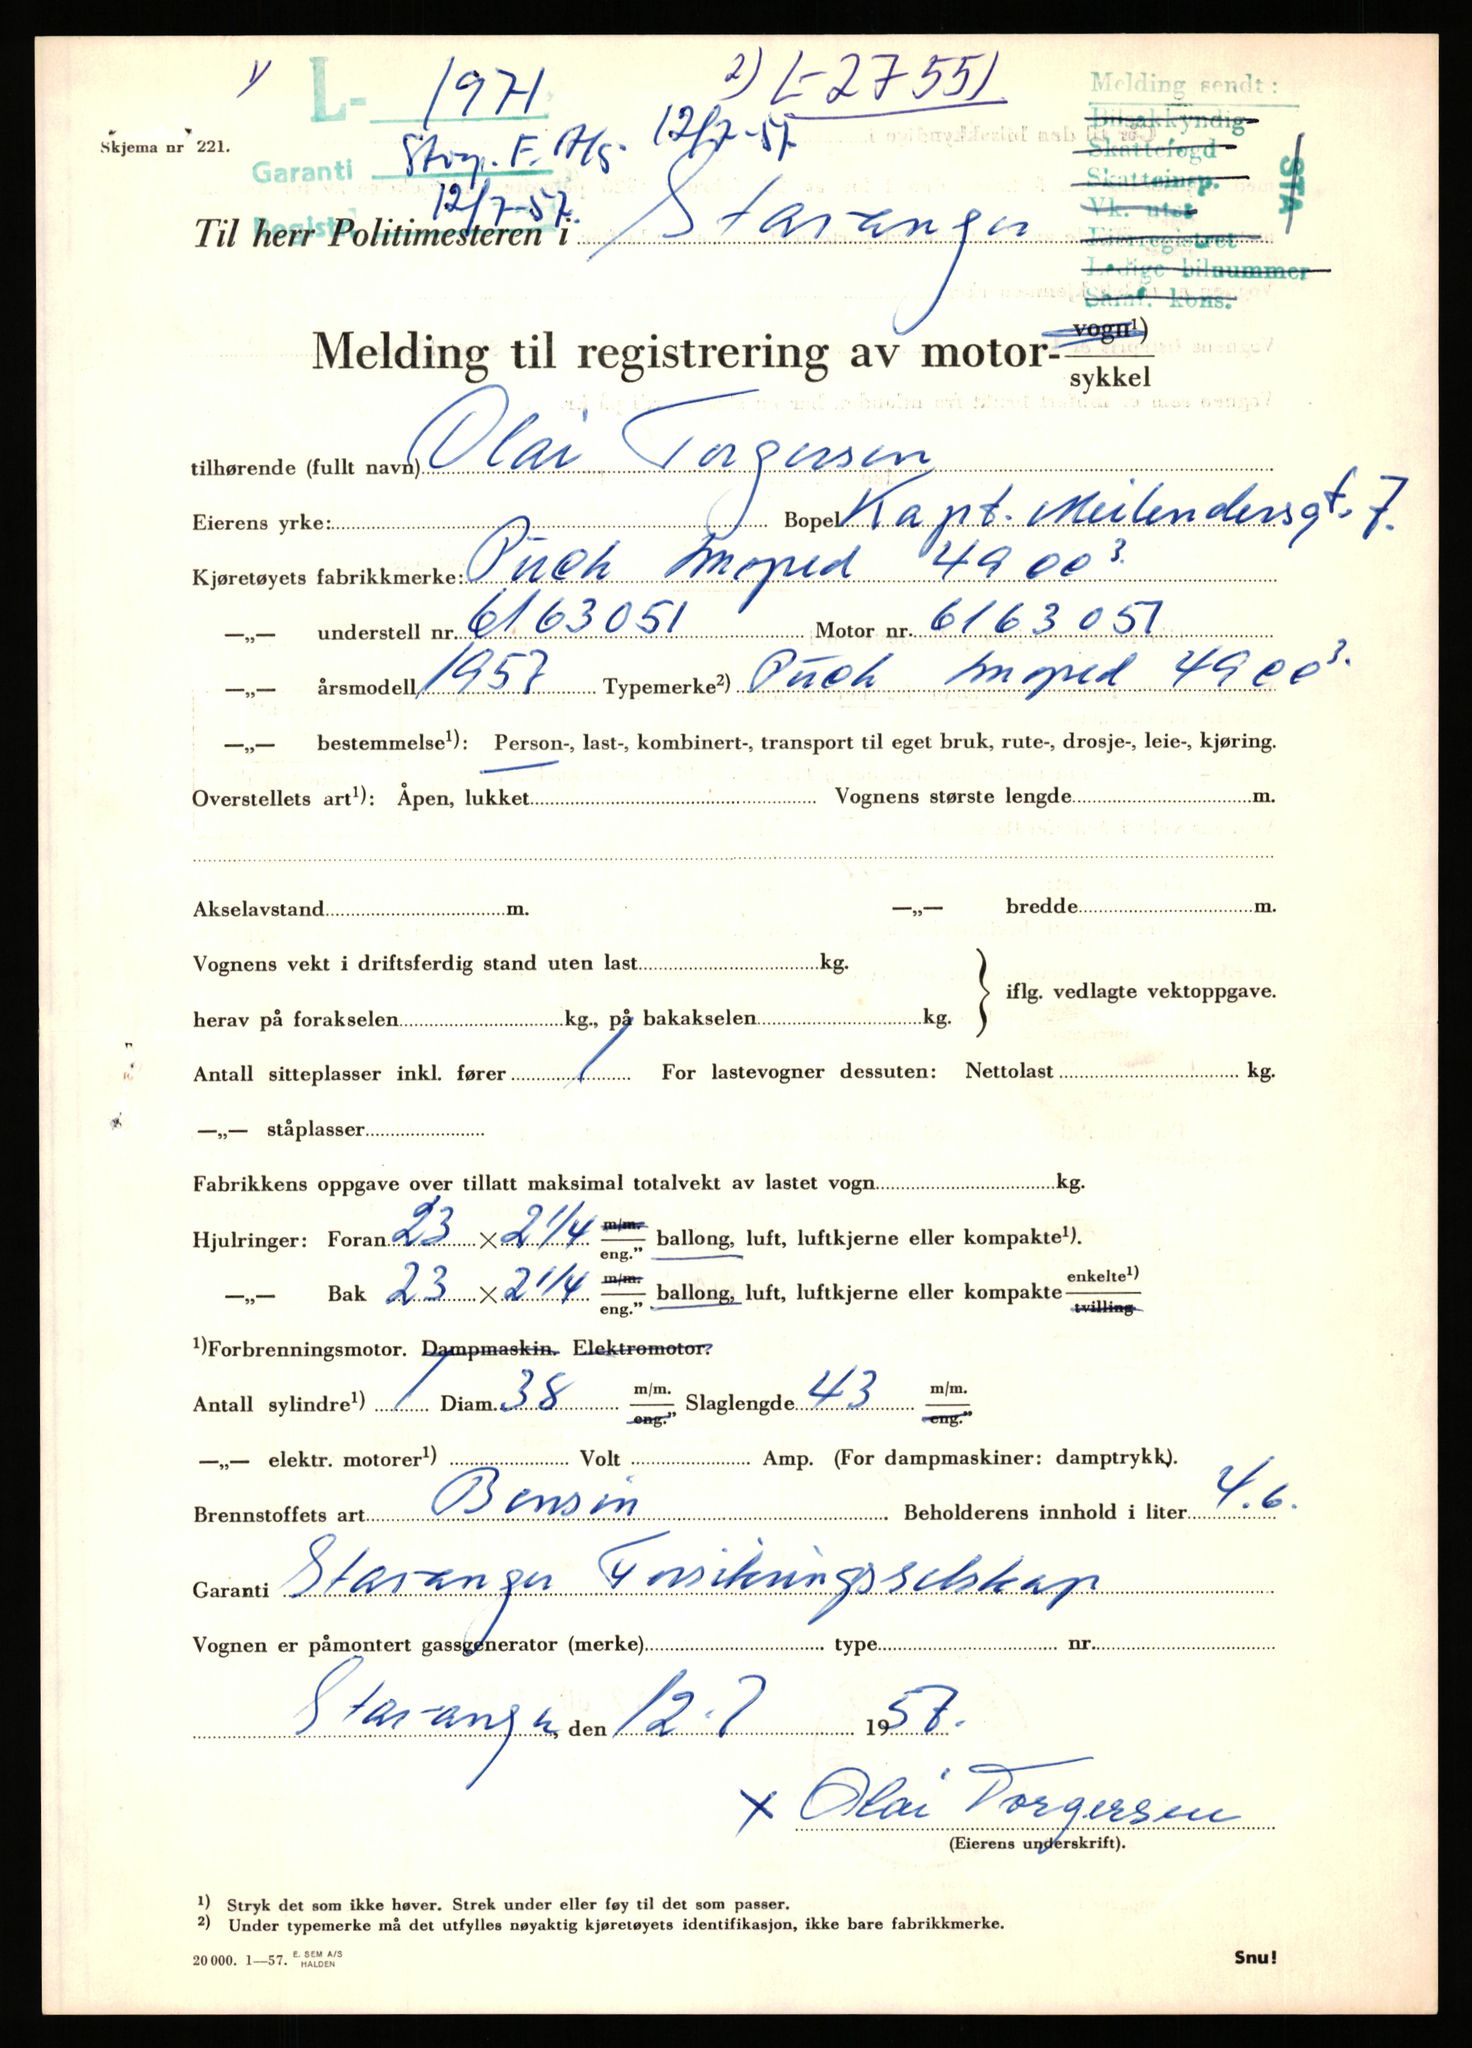 1) L- 1971 2) L-27551
Melding sendt:
Bilsakkyndig
Skattefogd
Skatteinsp.
Vk. utst
Eierregistret
Ledige bilnummer
Saml. kons.
STA
Skjema nr 221.
Garanti Stvg. F. A/s. 12/7-57.
Registr 12/7-57.
Til herr Politimesteren i Stavanger
Melding til registrering av motor- vogn¹)
sykkel
tilhørende (fullt navn) Olai Torgersen
Eierens yrke: Bopel Kapt. Meilendersgt. 7.
Kjøretøyets fabrikkmerke: Puch moped 49 cc³.
—„— understell nr. 6163051 Motor nr. 6163051
—„— årsmodell 1957 Typemerke²) Puch moped 49 cc³.
—„— bestemmelse¹): Person-, last-, kombinert-, transport til eget bruk, rute-, drosje-, leie-, kjøring.
Overstellets art¹): Åpen, lukket Vognens største lengde m.
Akselavstand m. —„— bredde m.
Vognens vekt i driftsferdig stand uten last kg.
herav på forakselen kg., på bakakselen kg. iflg. vedlagte vektoppgave.
Antall sitteplasser inkl. fører 1 For lastevogner dessuten: Nettolast kg.
—„— ståplasser
Fabrikkens oppgave over tillatt maksimal totalvekt av lastet vogn kg.
Hjulringer: Foran 23 × 2 1/4 m/m. eng.” ballong, luft, luftkjerne eller kompakte¹).
—„— Bak 23 × 2 1/4 m/m. eng.” ballong, luft, luftkjerne eller kompakte enkelte¹) tvilling
¹)Forbrenningsmotor. Dampmaskin. Elektromotor.
Antall sylindre¹) 1 Diam. 38 m/m. eng.” Slaglengde 43 m/m. eng.”
—„— elektr. motorer¹) Volt Amp. (For dampmaskiner: damptrykk).
Brennstoffets art Bensin Beholderens innhold i liter 4.6.
Garanti Stavanger Forsikringsselskap
Vognen er påmontert gassgenerator (merke) type nr.
Stavanger, den 12.7 1957.
x Olai Torgersen
(Eierens underskrift).
¹) Stryk det som ikke høver. Strek under eller føy til det som passer.
²) Under typemerke må det utfylles nøyaktig kjøretøyets identifikasjon, ikke bare fabrikkmerke.
20 000. 1—57. E. SEM A/S HALDEN Snu!